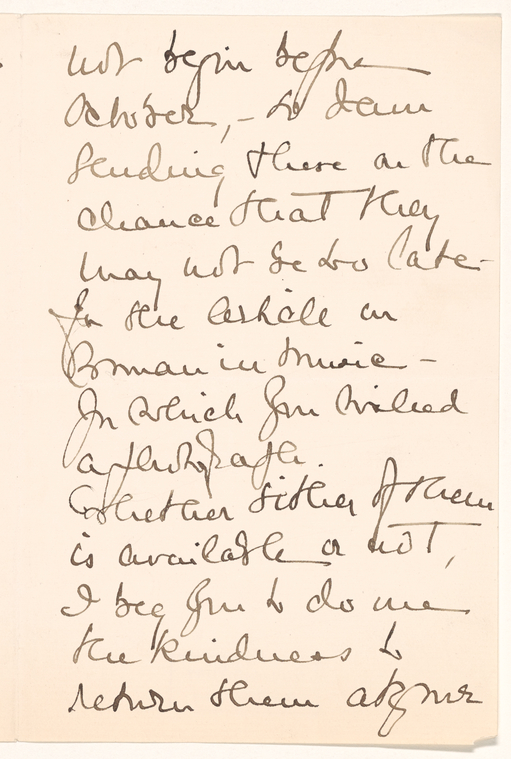 not begin before
October, – so I am
sending these on the
chance that they
may not be too late
for the Article on
Woman in Music –
for which you wished
a photograph.
Whether either of them
is available or not,
I beg you to do me
the kindness to
return them at your